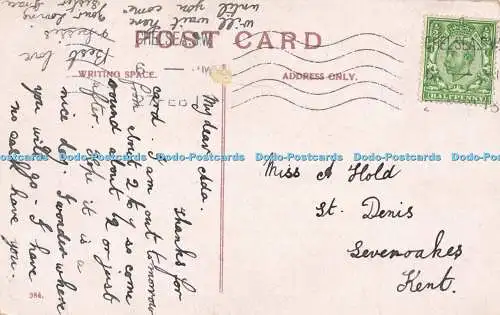 POST CARD
WRITING SPACE.
ADDRESS ONLY.
CHELSEA S.W.
FEB
HALFPENNY
My dear Ada.
Thanks for
card. I am out tomorrow
from about 2 to 7 so come
round about 2 or just
after. Hope it is a
nice day. I wonder where
you will go - I have
no
have you.
Best love
your loving
sister
will wait here
until you come
Miss A Hold
St. Denis
Sevenoakes
Kent.
986.
Dodo-Postcards Dodo-Postcards Dodo-Postcards Dodo-Postcards Dodo-Postcards Dodo-Postcards